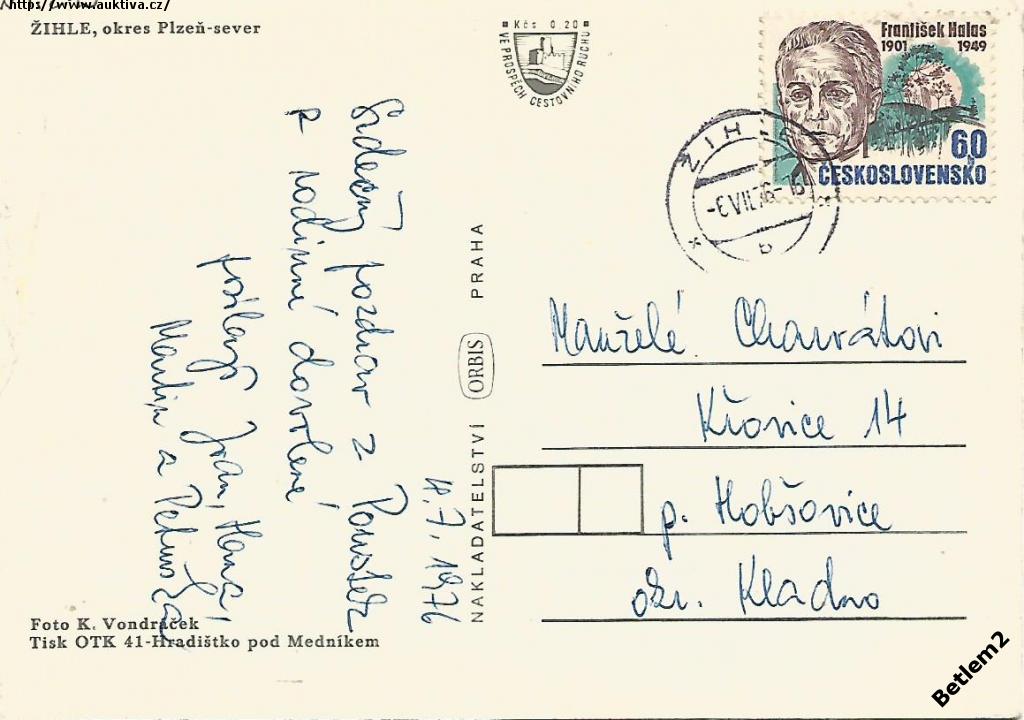 https://www.auktiva.cz/
ŽIHLE, okres Plzeň-sever
Kčs 0.20
VE PROSPĚCH CESTOVNÍHO RUCHU
František Halas
1901 1949
60
ČESKOSLOVENSKO
ŽIHLE
-6.VII.76-15
b
4.7.1976
Srdečný pozdrav z
z rodinné dovolené
posílají Ivan, Hana,
Martin a Petruška
NAKLADATELSTVÍ ORBIS PRAHA
Manželé Charvátovi
Křovice 14
p. Hobšovice
okr. Kladno
Foto K. Vondráček
Tisk OTK 41-Hradištko pod Medníkem
Betlem2